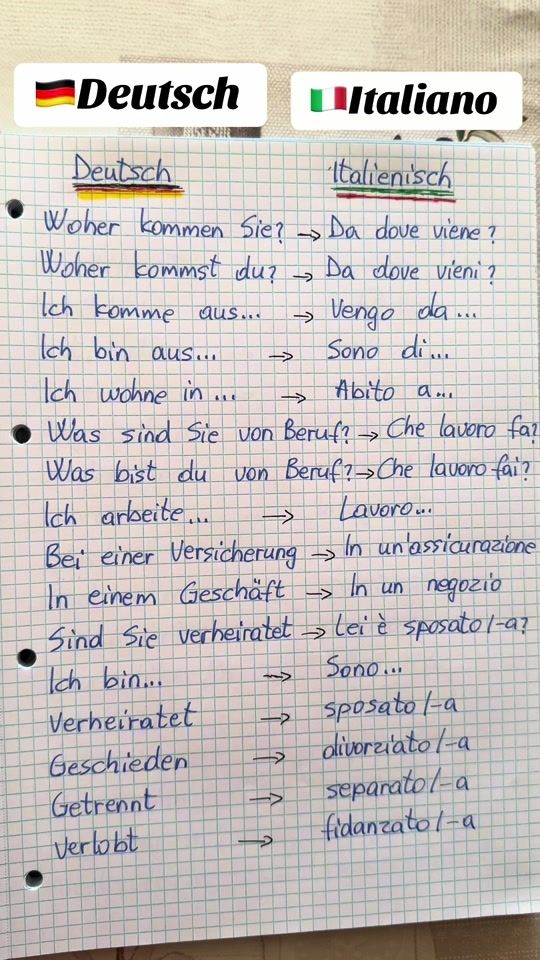 🇩🇪Deutsch 🇮🇹Italiano
Deutsch Italienisch
Woher kommen Sie? → Da dove viene?
Woher kommst du? → Da dove vieni?
Ich komme aus... → Vengo da...
Ich bin aus... → Sono di...
Ich wohne in ... → Abito a...
Was sind Sie von Beruf? → Che lavoro fa?
Was bist du von Beruf? → Che lavoro fai?
Ich arbeite... → Lavoro...
Bei einer Versicherung → In un'assicurazione
In einem Geschäft → In un negozio
Sind Sie verheiratet → Lei è sposato/-a?
Ich bin... → Sono...
Verheiratet → sposato/-a
Geschieden → divorziato/-a
Getrennt → separato/-a
Verlobt → fidanzato/-a